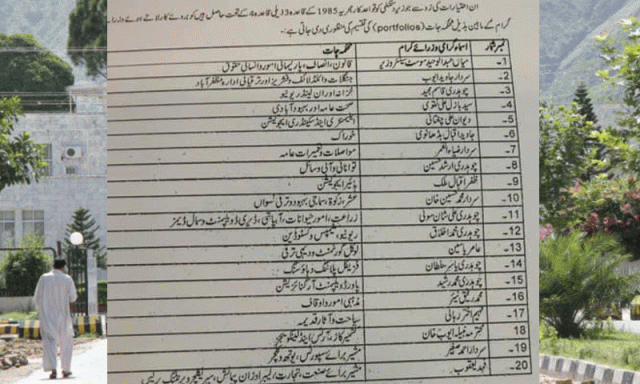 ان اختیارات کی رو سے جو وزیر اعظم کو قواعد کار مجریہ 1985 کے قاعدہ 3 ذیلی قاعدہ 4 کے تحت حاصل ہیں کو بروئے کار لاتے ہوئے وزراء
کرام کے مابین بذیل محکمہ جات (portfolios) کی تقسیم کی منظوری دی جاتی ہے:-
نمبر شمار اسماء گرامی وزرائے کرام محکمہ جات
1- میاں عبدالوحید موسٹ سینئر وزیر قانون، انصاف، پارلیمانی امور و انسانی حقوق
2- سردار جاوید ایوب جنگلات، وائلڈ لائف و فشریز اور ترقیاتی ادارہ مظفرآباد
3- چوہدری قاسم مجید خزانہ اور ان لینڈ ریونیو
4- سید بازل علی نقوی صحت عامہ اور بہبود آبادی
5- دیوان علی چغتائی ایلیمنٹری اینڈ سیکنڈری ایجوکیشن
6- جاوید اقبال بڈھانوی خوراک
7- سردار ضیاء القمر مواصلات و تعمیرات عامہ
8- چوہدری ارشد حسین توانائی و آبی وسائل
9- ظفر اقبال ملک ہائیر ایجوکیشن
10- سردار محمد حسین خان عشر، زکوٰۃ، سماجی بہبود و ترقی نسواں
11- چوہدری علی شان سونی زراعت، امور حیوانات، آبپاشی، ڈیری ڈویلپمنٹ و سمال ڈیمز
12- چوہدری محمد اخلاق ریونیو، سٹیمپس و کسٹوڈین
13- عامر یاسین لوکل گورنمنٹ و دیہی ترقی
14- چوہدری یاسر سلطان فزیکل پلاننگ و ہاؤسنگ
15- چوہدری محمد رشید پاور ڈویلپمنٹ آرگنائزیشن
16- محمد رفیق نیئر مذہبی امور و اوقاف
17- فہیم اختر ربانی سیاحت و آثار قدیمہ
18 محترمہ نبیلہ ایوب خان کشمیر کاز، آرٹس اینڈ لینگویجز
19- سردار احمد صغیر مشیر برائے سپورٹس، یوتھ و کلچر
20- فہد یعقوب مشیر برائے صنعت، تجارت، لیبر اوزان پیمائش،